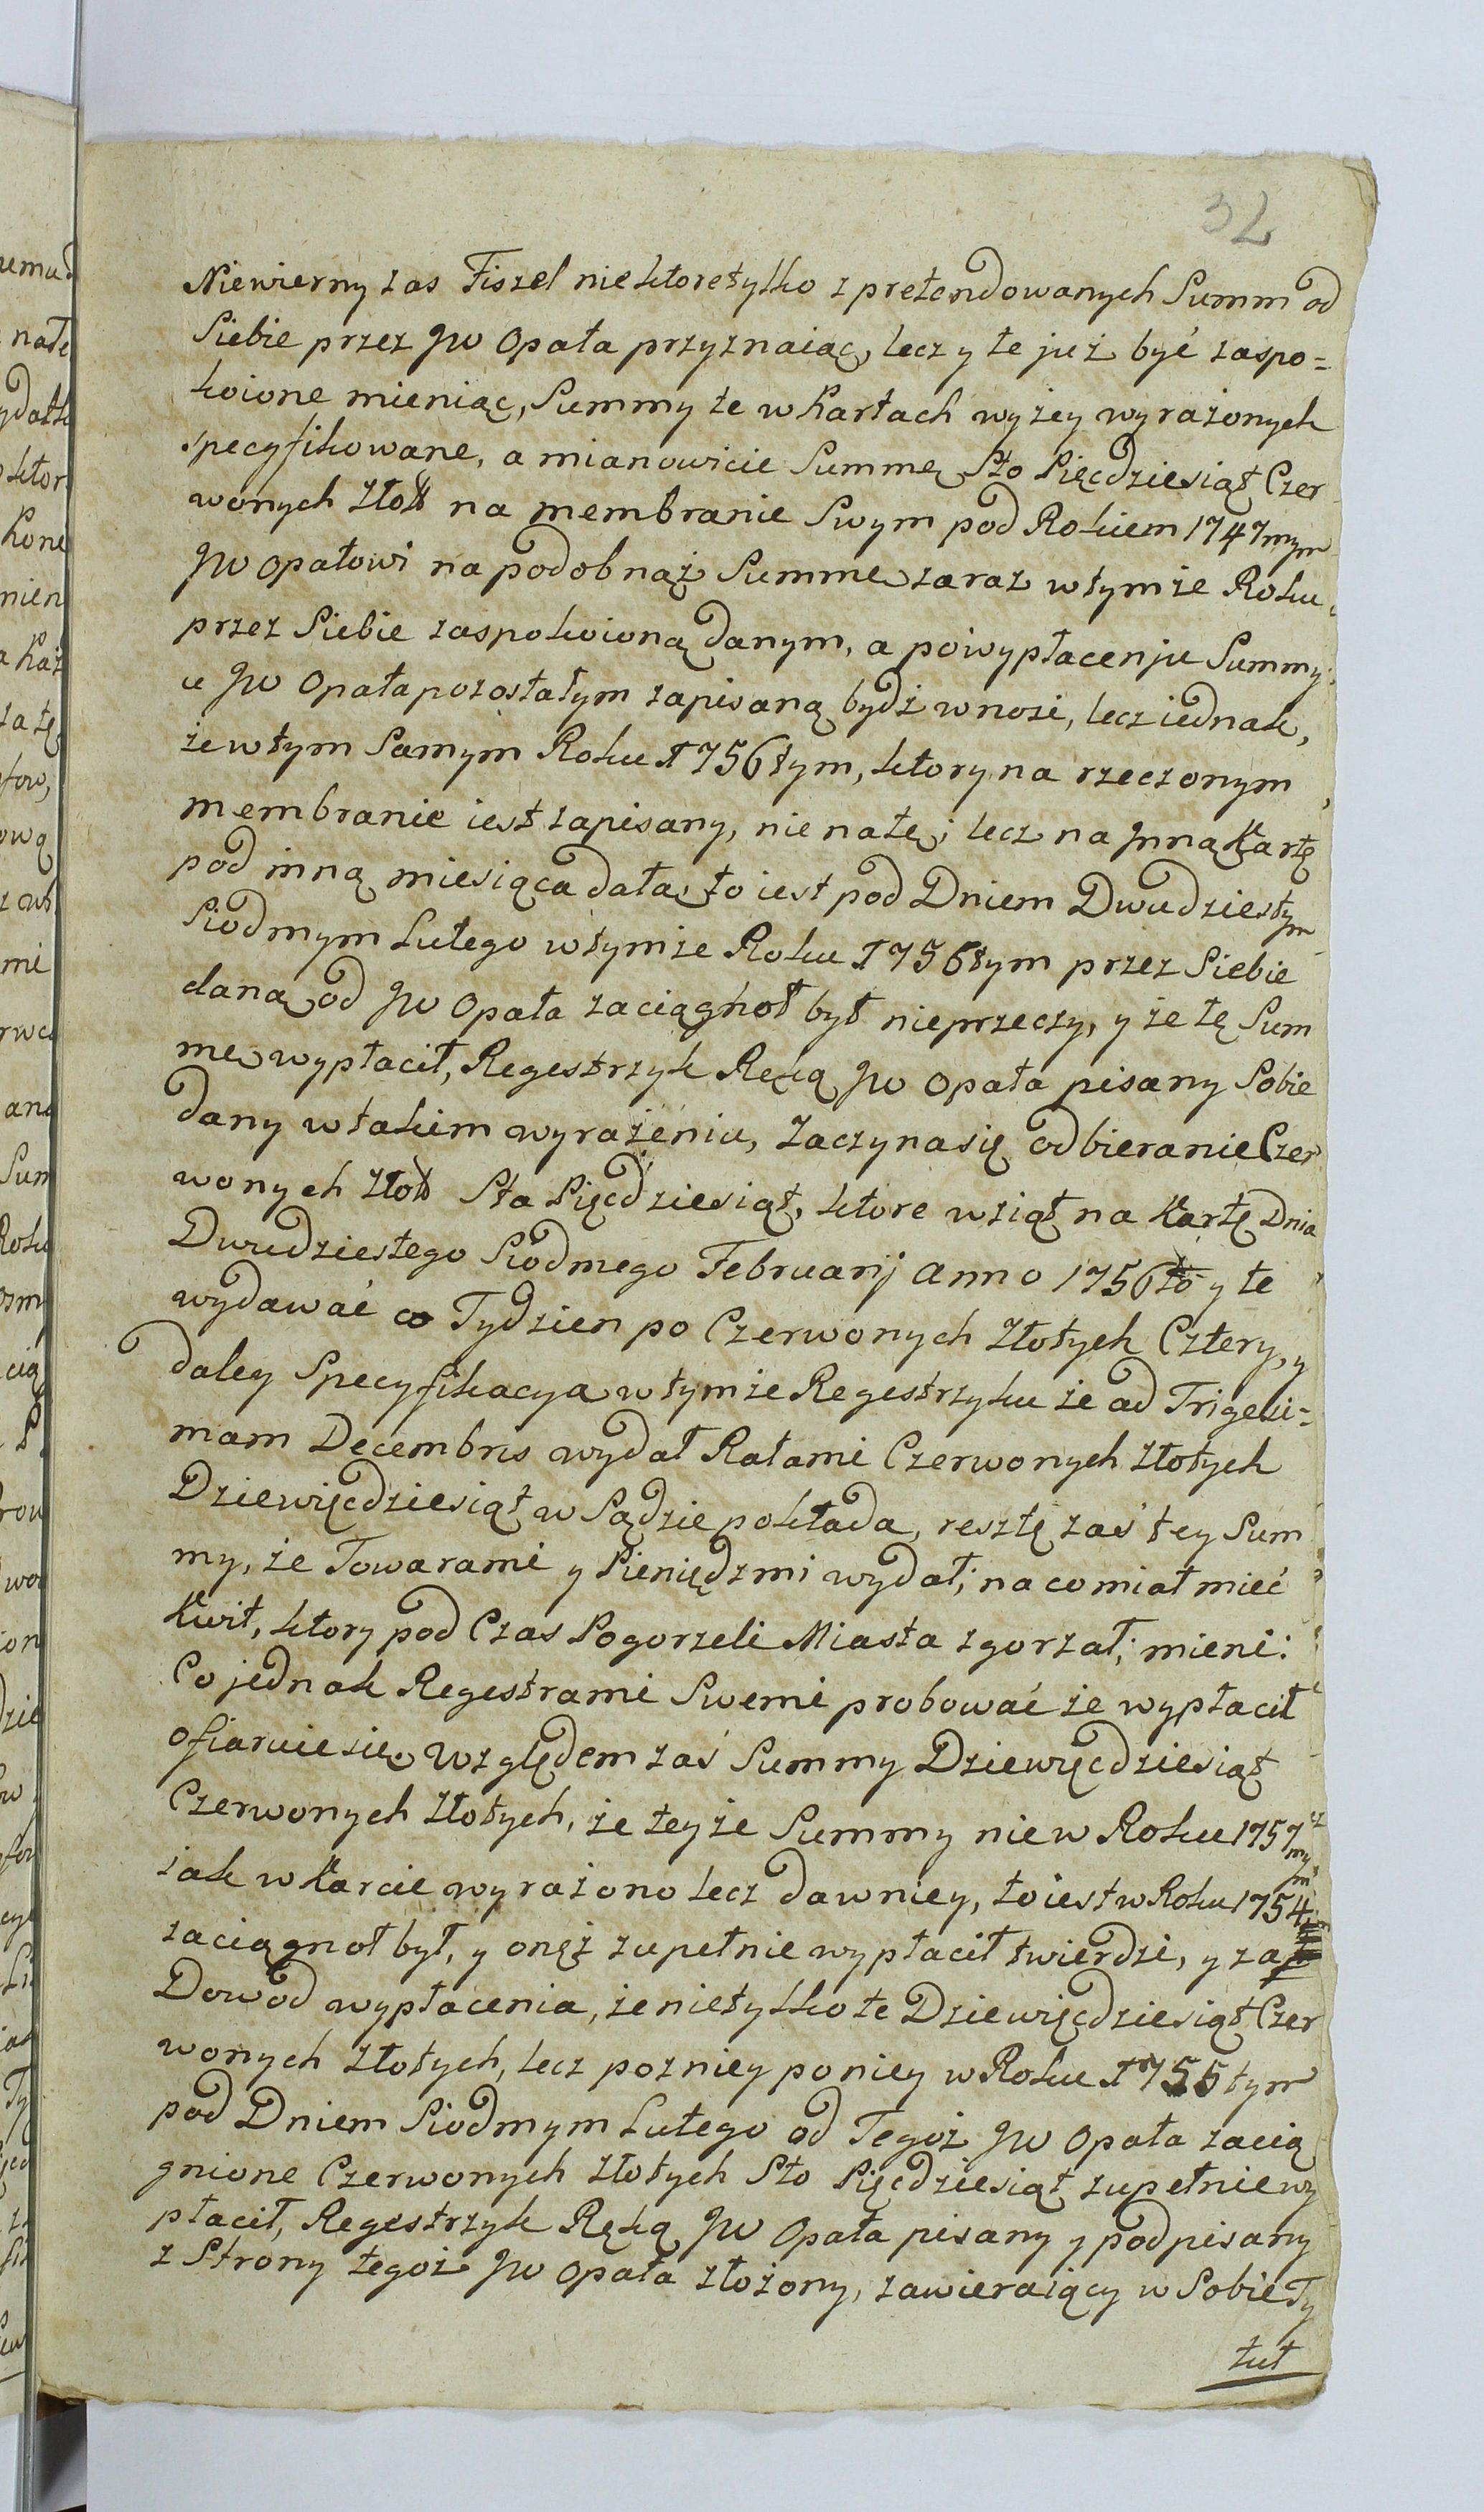 32
Niewierny zas Fiszel niektore tylko z pretendowanych Summ od
Siebie przez JW Opata przyznaiąc, lecz y te już być zaspo=
koione mieniąc, Summy te w Kartach wyżey wyrażonych
specyfikowane, a mianowicie Summę Sto Pięcdziesiąt Czer
wonych Złott na membranie Swym pod Rokiem 1747mym
JW Opatowi na podobnąż Summę zaraz w tymże Roku
przez Siebie zaspokoioną danym, a po wypłaceniu Summy
u JW Opata pozostałym zapisaną bydź wnosi, lecz iednak,
że w tym Samym Roku 1756tym, ktory na rzeczonym
membranie iest zapisany, nie na tę; lecz na Jnną Kartę
pod inną miesiąca datą, to iest pod Dniem Dwudziestym
Siodmym Lutego w tymże Roku 1756tym przez Siebie
daną od JW Opata zaciągnoł był nieprzeczy, y że tę Sum
mę wypłacił, Regestrzyk Ręką JW Opata pisany Sobie
dany w takim wyrażeniu, Zaczyna się odbieranie Czer
wonych Złott Sta Pięcdziesiąt, ktore wziął na Kartę Dnia
Dwudziestego Siodmego Februarij Anno 1756to y te
wydawać co Tydzien po Czerwonych Złotych Cztery, y
daley Specyfikacya w tymże Regestrzyku że ad Trigesi=
mam Decembris wydał Ratami Czerwonych Złotych
Dziewięcdziesiąt w Sądzie pokłada, resztę zaś tey Sum
my, że Towarami y Pieniędzmi wydał; na co miał mieć
Kwit, ktory pod Czas Pogorzeli Miasta zgorzał; mieni:
Co jednak Regestrami Swemi probować że wypłacił
ofiaruie się. Względem zaś Summy Dziewięcdziesiąt
Czerwonych Złotych, że teyże Summy nie w Roku 1757mym
iak w Karcie wyrażono lecz dawniey, to iest w Roku 1754
zaciągnoł był, y onęż zupełnie wypłacił twierdzi, y za
Dowod wypłacenia, że nie tylko te Dziewięcdziesiąt Czer
wonych Złotych, lecz pozniey poniey w Roku 1755tym
pod Dniem Siodmym Lutego od Tegoż JW Opata zacią
gnione Czerwonych Złotych Sto Pięcdziesiąt zupełnie wy
płacił, Regestrzyk Ręką JW Opata pisany y podpisany
z Strony tegoż JW Opata złożony, zawieraiący w Sobie Ty
tuł